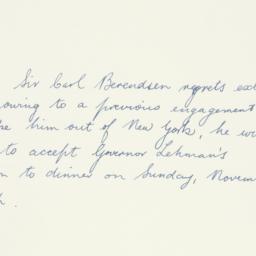 Sir Carl Berendsen regrets ext
owing to a previous engagement
him out of New York, he w
to accept Governor Lehman's
to dinner on Sunday, Novem